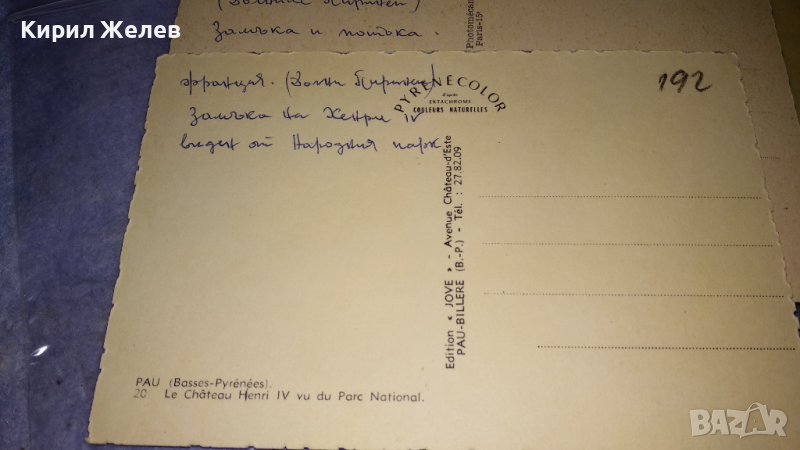 Кирил Желев
(Долни Пиринеи)
Замъка и потока.
Photomécan
Paris-15e
Франция. (Долни Пиринеи)
Замъка на Хенри IV
виден от Народния парк
192
PYRENECOLOR
d'après
EKTACHROME
COULEURS NATURELLES
Edition « JOVE » - Avenue Château-d'Este
PAU-BILLERE (B.-P.) - Tél. : 27.82.09
PAU (Basses-Pyrénées).
20 Le Château Henri IV vu du Parc National.
BAZAR